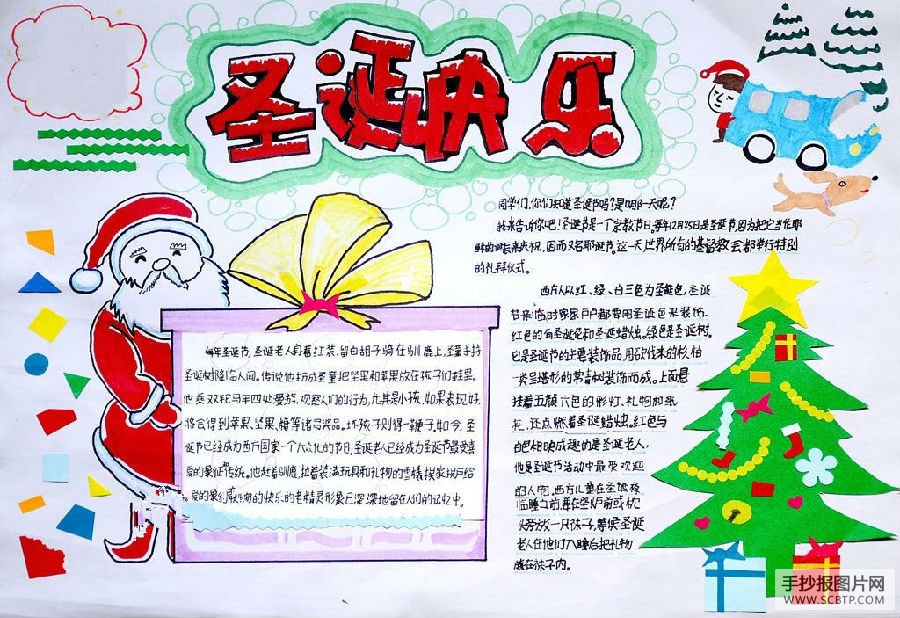 圣诞快乐
同学们,你们知道圣诞节吗?是哪一天呢?
我来告诉你吧!圣诞节是一个宗教节日,每年12月25日是圣诞节因为把它当作耶
稣的诞辰来庆祝,因而又名耶诞节。这一天世界所有的基督教会都举行特别
的礼拜仪式。
西方人以红、绿、白三色为圣诞色,圣诞
节来临时家家户户都要用圣诞色来装饰.
红色的有圣诞花和圣诞蜡烛。绿色是圣诞树。
它是圣诞节的主要装饰品,用砍伐来的杉、柏
一类呈塔形的常青树装饰而成。上面悬
挂着五颜六色的彩灯、礼物和纸
花,还点燃着圣诞蜡烛。红色与
白色相映成趣的是圣诞老人,
他是圣诞节活动中最受欢迎
的人物。西方儿童在圣诞夜
临睡之前,要在壁炉前或枕
头旁放一只袜子,等候圣诞
老人在他们入睡后把礼物
放在袜子内。
每年圣诞节,圣诞老人
红装,留白胡子骑在驯鹿上,圣童手持
圣诞树降临人间。传说他
把坚果和苹果放在孩子们鞋里。
他乘双轮马车四处漫游,观察人们的行为,尤其是小孩,如果表现好,
将会得到苹果、坚果、糖等诸多奖品。坏孩子则得一鞭子。如今,圣
诞节已经成为西方国家一个大众化的节日,圣诞老人已经成为圣诞节最受喜
爱的象征传统。他赶着驯鹿,拉着装满玩具和礼物的雪橇挨家挨户给
的快乐的老精灵形象已深深地留在人们的记忆中。
手抄报图片网
WWW.SCBTP.COM